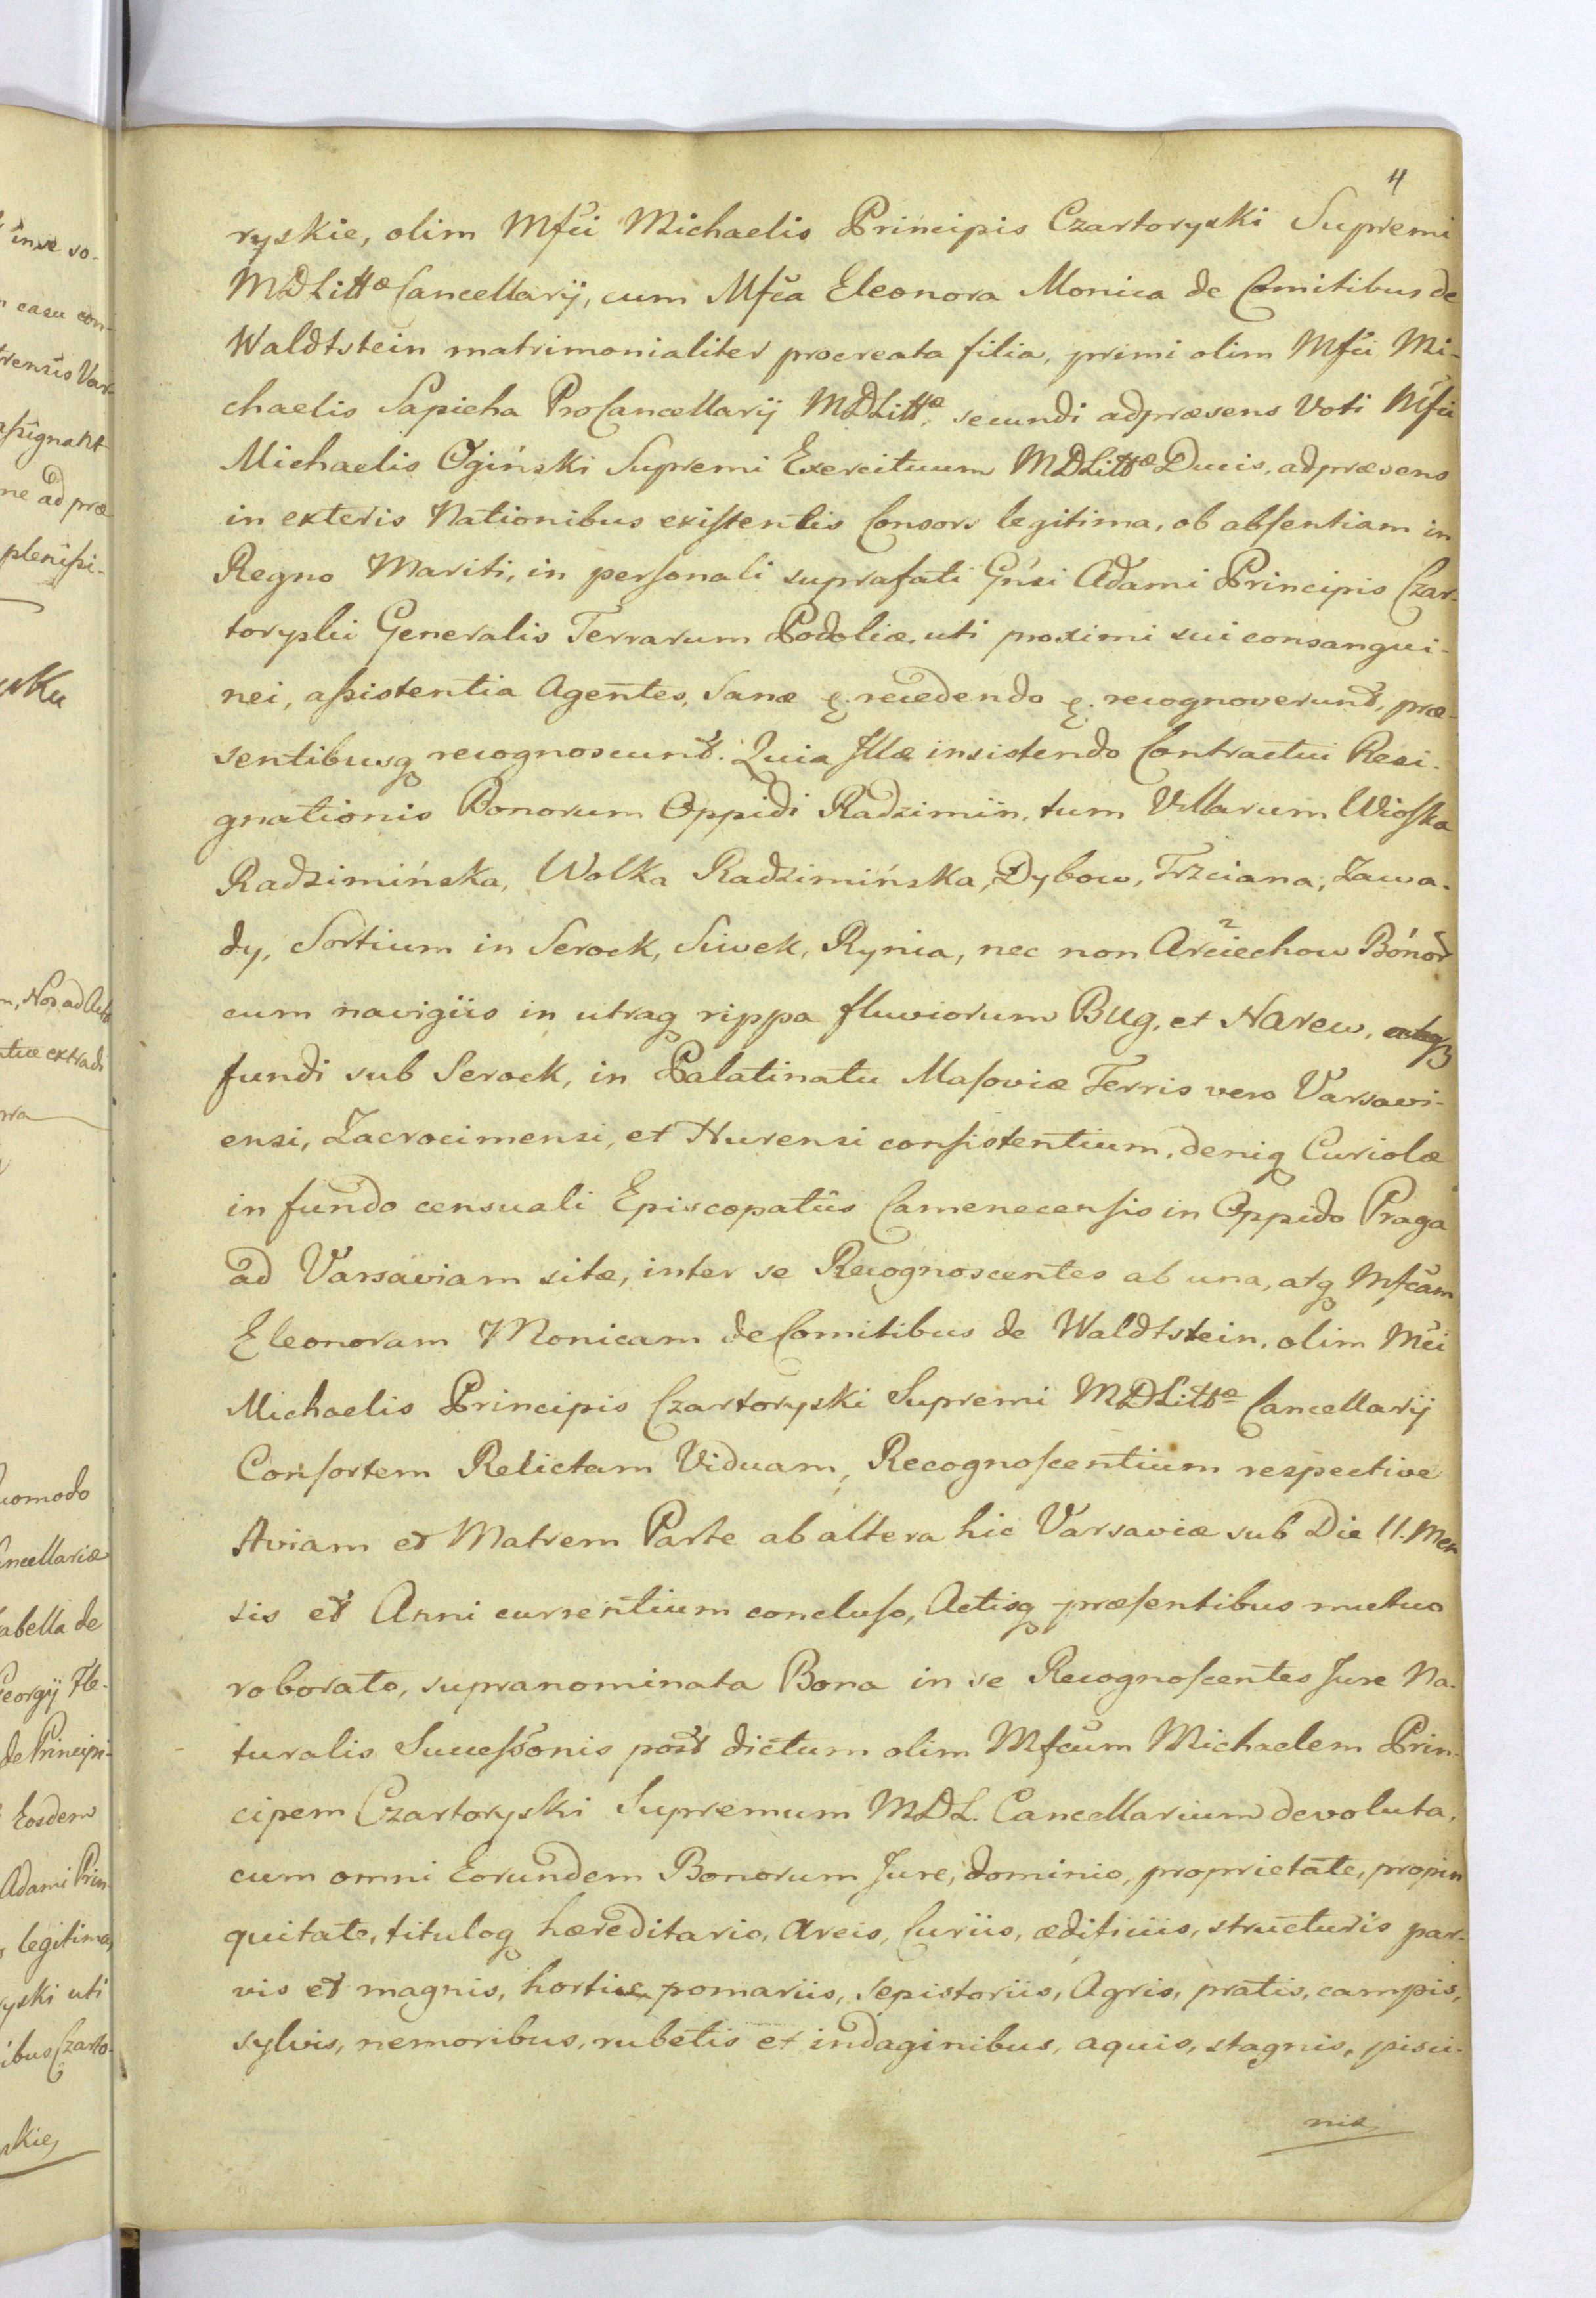 4
ryskie, olim Mfci Michaelis Principis Czartoryski Supremi
MDLittæ Cancellarij, cum Mfca Eleonora Monica de Comitibus de
Waldtstein matrimonialiter procreata filia, primi olim Mfci Mi-
chaelis Sapieha ProCancellarij MDLittæ, secundi adpræsens Voti Mfci
Michaelis Ogiński Supremi Exercituum MDLittæ Ducis, adpræsens
in exteris Nationibus existentis Consors legitima, ob absentiam in
Regno Mariti, in personali suprafati Gnsi Adami Principis Czar-
toryski Generalis Terrarum Podoliæ, uti proximi sui consangui-
nei, assistentia Agentes, Sanæ &. recedendo &. recognoverunt, præ-
sentibusq recognoscunt. Quia Illæ insistendo Contractui Resi-
gnationis Bonorum Oppidi Radzimiin, tum Villarum Wioska
Radzimińska, Wolka Radzimińska, Dybow, Trzciana, Zawa-
dy, Sortium in Serock, Siwek, Rynia, nec non Arciechow Bónor
cum navigiis in utraq rippa fluviorum Bug, et Narew, atq
fundi sub Serock, in Palatinatu Masoviæ Terris vero Varsavi-
ensi, Zacrocimensi, et Nurensi consistentium, deniq Curiolæ
in fundo censuali Episcopatûs Camenecensis in Oppido Praga
ad Varsaviam sitæ, inter se Recognoscentes ab una, atq Mfcam
Eleonoram Monicam de Comitibus de Waldtstein, olim Mci
Michaelis Principis Czartoryski Supremi MDLittæ Cancellarij
Consortem Relictam Viduam, Recognoscentium respective
Aviam et Matrem Parte ab altera hic Varsaviæ sub Die 11. Men
sis et Anni currentium concluso, Actisq præsentibus mutuo
roborato, supranominata Bona in se Recognoscentes Jure Na-
turalis Successonis post dictum olim Mfcum Michaelem Prin-
cipem Czartoryski Supremum MDL. Cancellarium devoluta,
cum omni Eorundem Bonorum Jure, dominio, proprietate, propin
quitate, tituloq hæreditario, Areis, Curiis, ædificiis, structuris par-
vis et magnis, hortis pomariis, sepistoriis, Agris, pratis, campis,
sylvis, nemoribus, rubetis et indaginibus, aquis, stagnis, pisci-
nis